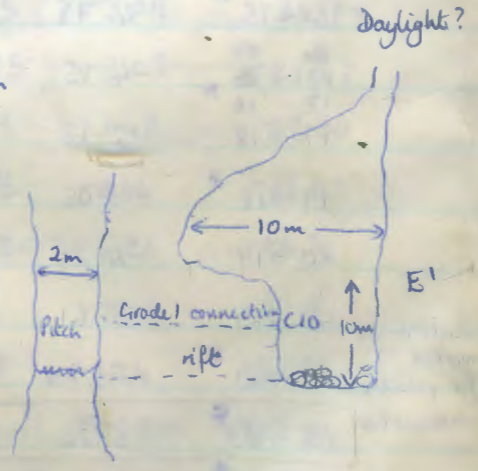 Daylight?
10m
2m
E'
Grade 1 connection
C10
10m
Pitch
rift